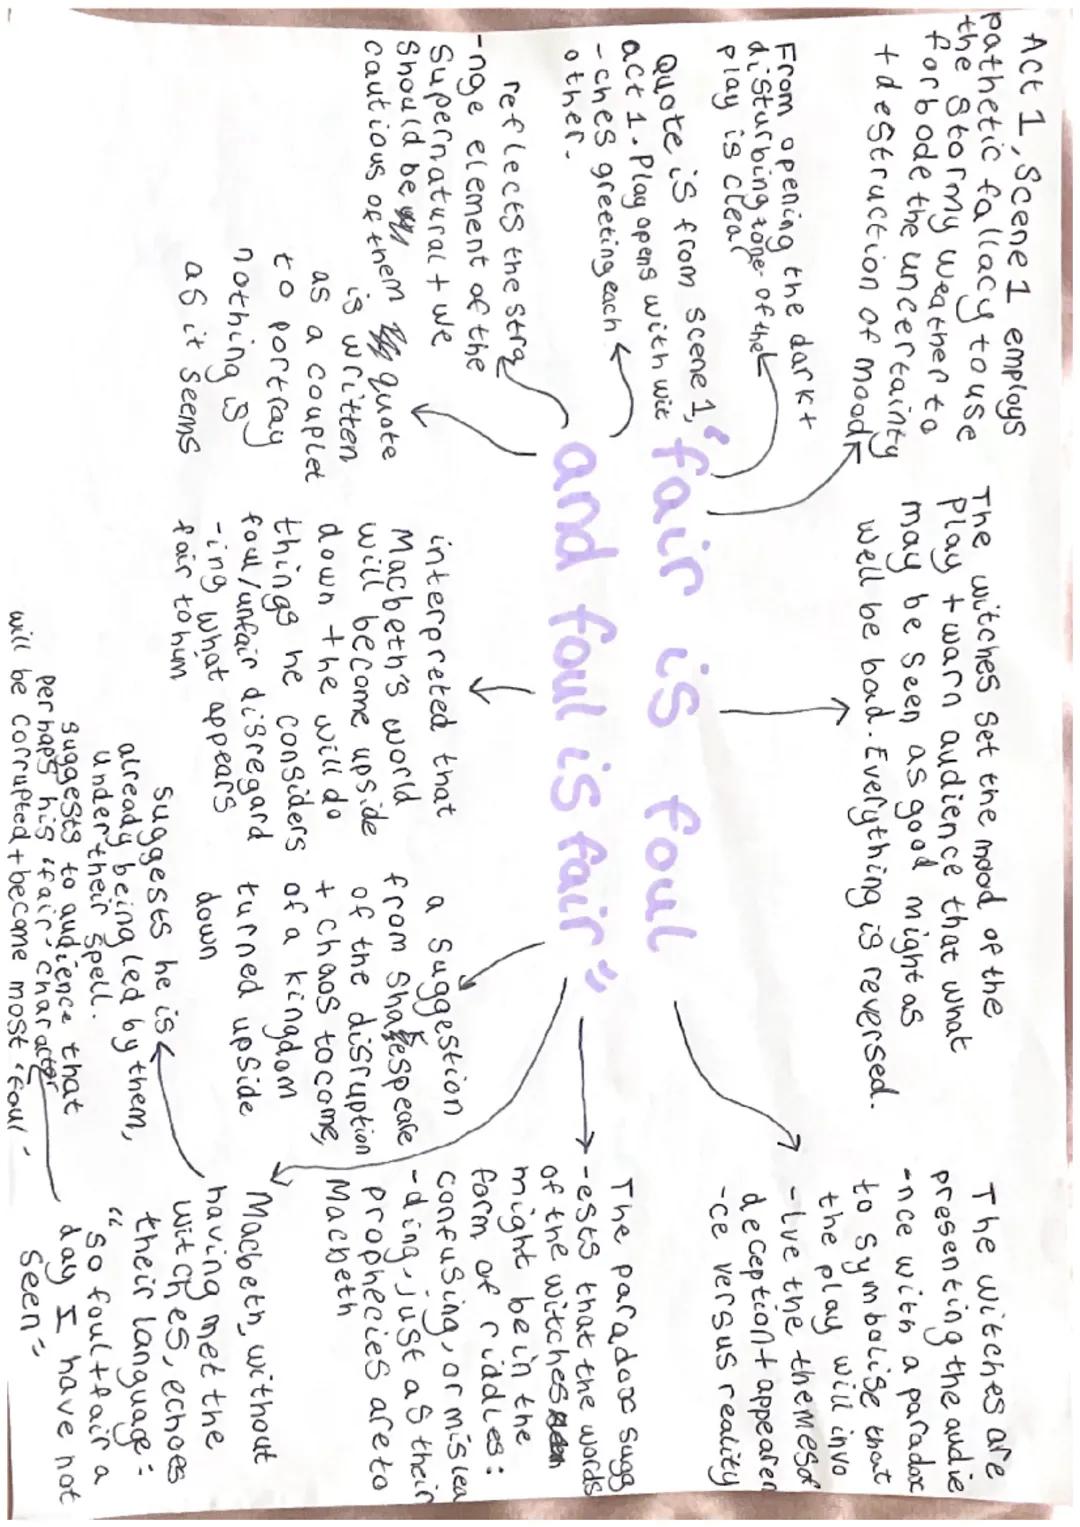 Act 1, Scene 1 employs
pathetic fallacy to use
the stormy weather to
forbode the uncertainty
+ destruction of mood
The witches set the mood of the
play + warn audience that what
may be seen as good might as
well be bad. Everything is reversed.
The witches are
presenting the audie
-nce with a paradox
to symbolise that
the play will invo
-lve the themes of
deception + appearen
-ce versus reality
From opening the dark +
disturbing tone of the
play is clear
Quote is from scene 1,
act 1. Play opens with wit
-ches greeting each
other.
"fair is foul
and foul is fair"
The paradox sugg
-ests that the words
of the witches
might be in the
form of riddles:
confusing, or mislea
-ding, just as their
prophecies are to
Macbeth
reflects the stra
-nge element of the
Supernatural + we
should be
cautious of them
quote
is written
as a couplet
to portray
nothing is
as it seems
interpreted that
Macbeth's world
will become upside
down + he will do
things he considers
foul/unfair disregard
-ing what appears
fair to him
a suggestion
from Shakespeare
of the disruption
+ chaos to come,
of a kingdom
turned upside
down
Macbeth, without
having met the
witches, echoes
their language:
"so foul + fair a
day I have not
seen"
Suggests he is
already being led by them,
under their spell.
Suggests to audience that
perhaps his 'fair' character
will be corrupted + become most 'foul'